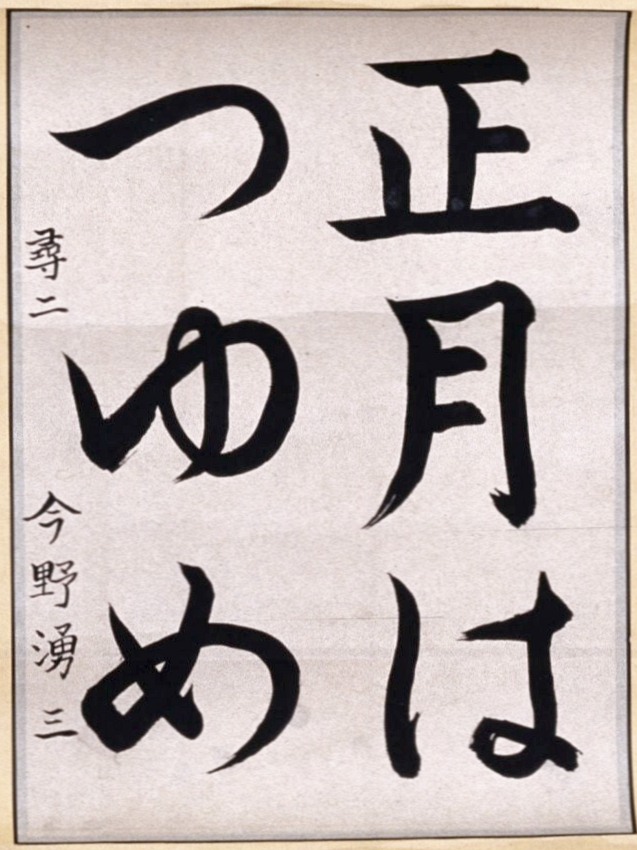 正月は
つゆめ
尋二 今野湧三